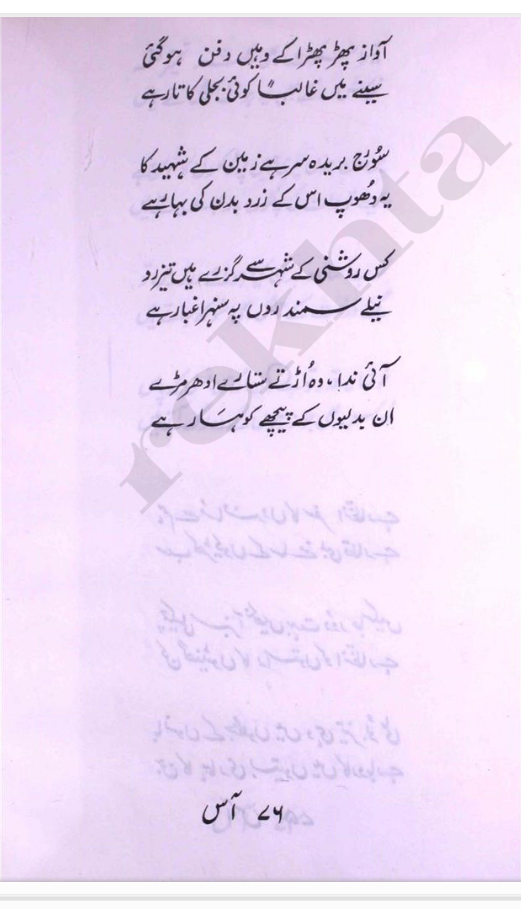 آواز پھڑپھڑا کے وہیں دفن ہوگئی
سینے میں غالباً کوئی بجلی کا تار ہے
سُورج بریدہ سر ہے زمین کے شہید کا
یہ دُھوپ اس کے زرد بدن کی بہار ہے
کس روشنی کے شہر سے گزرے ہیں تیز رو
نیلے سمندروں پہ سنہرا غبار ہے
آئی ندا، وہ اُڑتے ستارے ادھر مڑے
ان بدلیوں کے پیچھے کوہسار ہے
rekhta
۷۶ آس